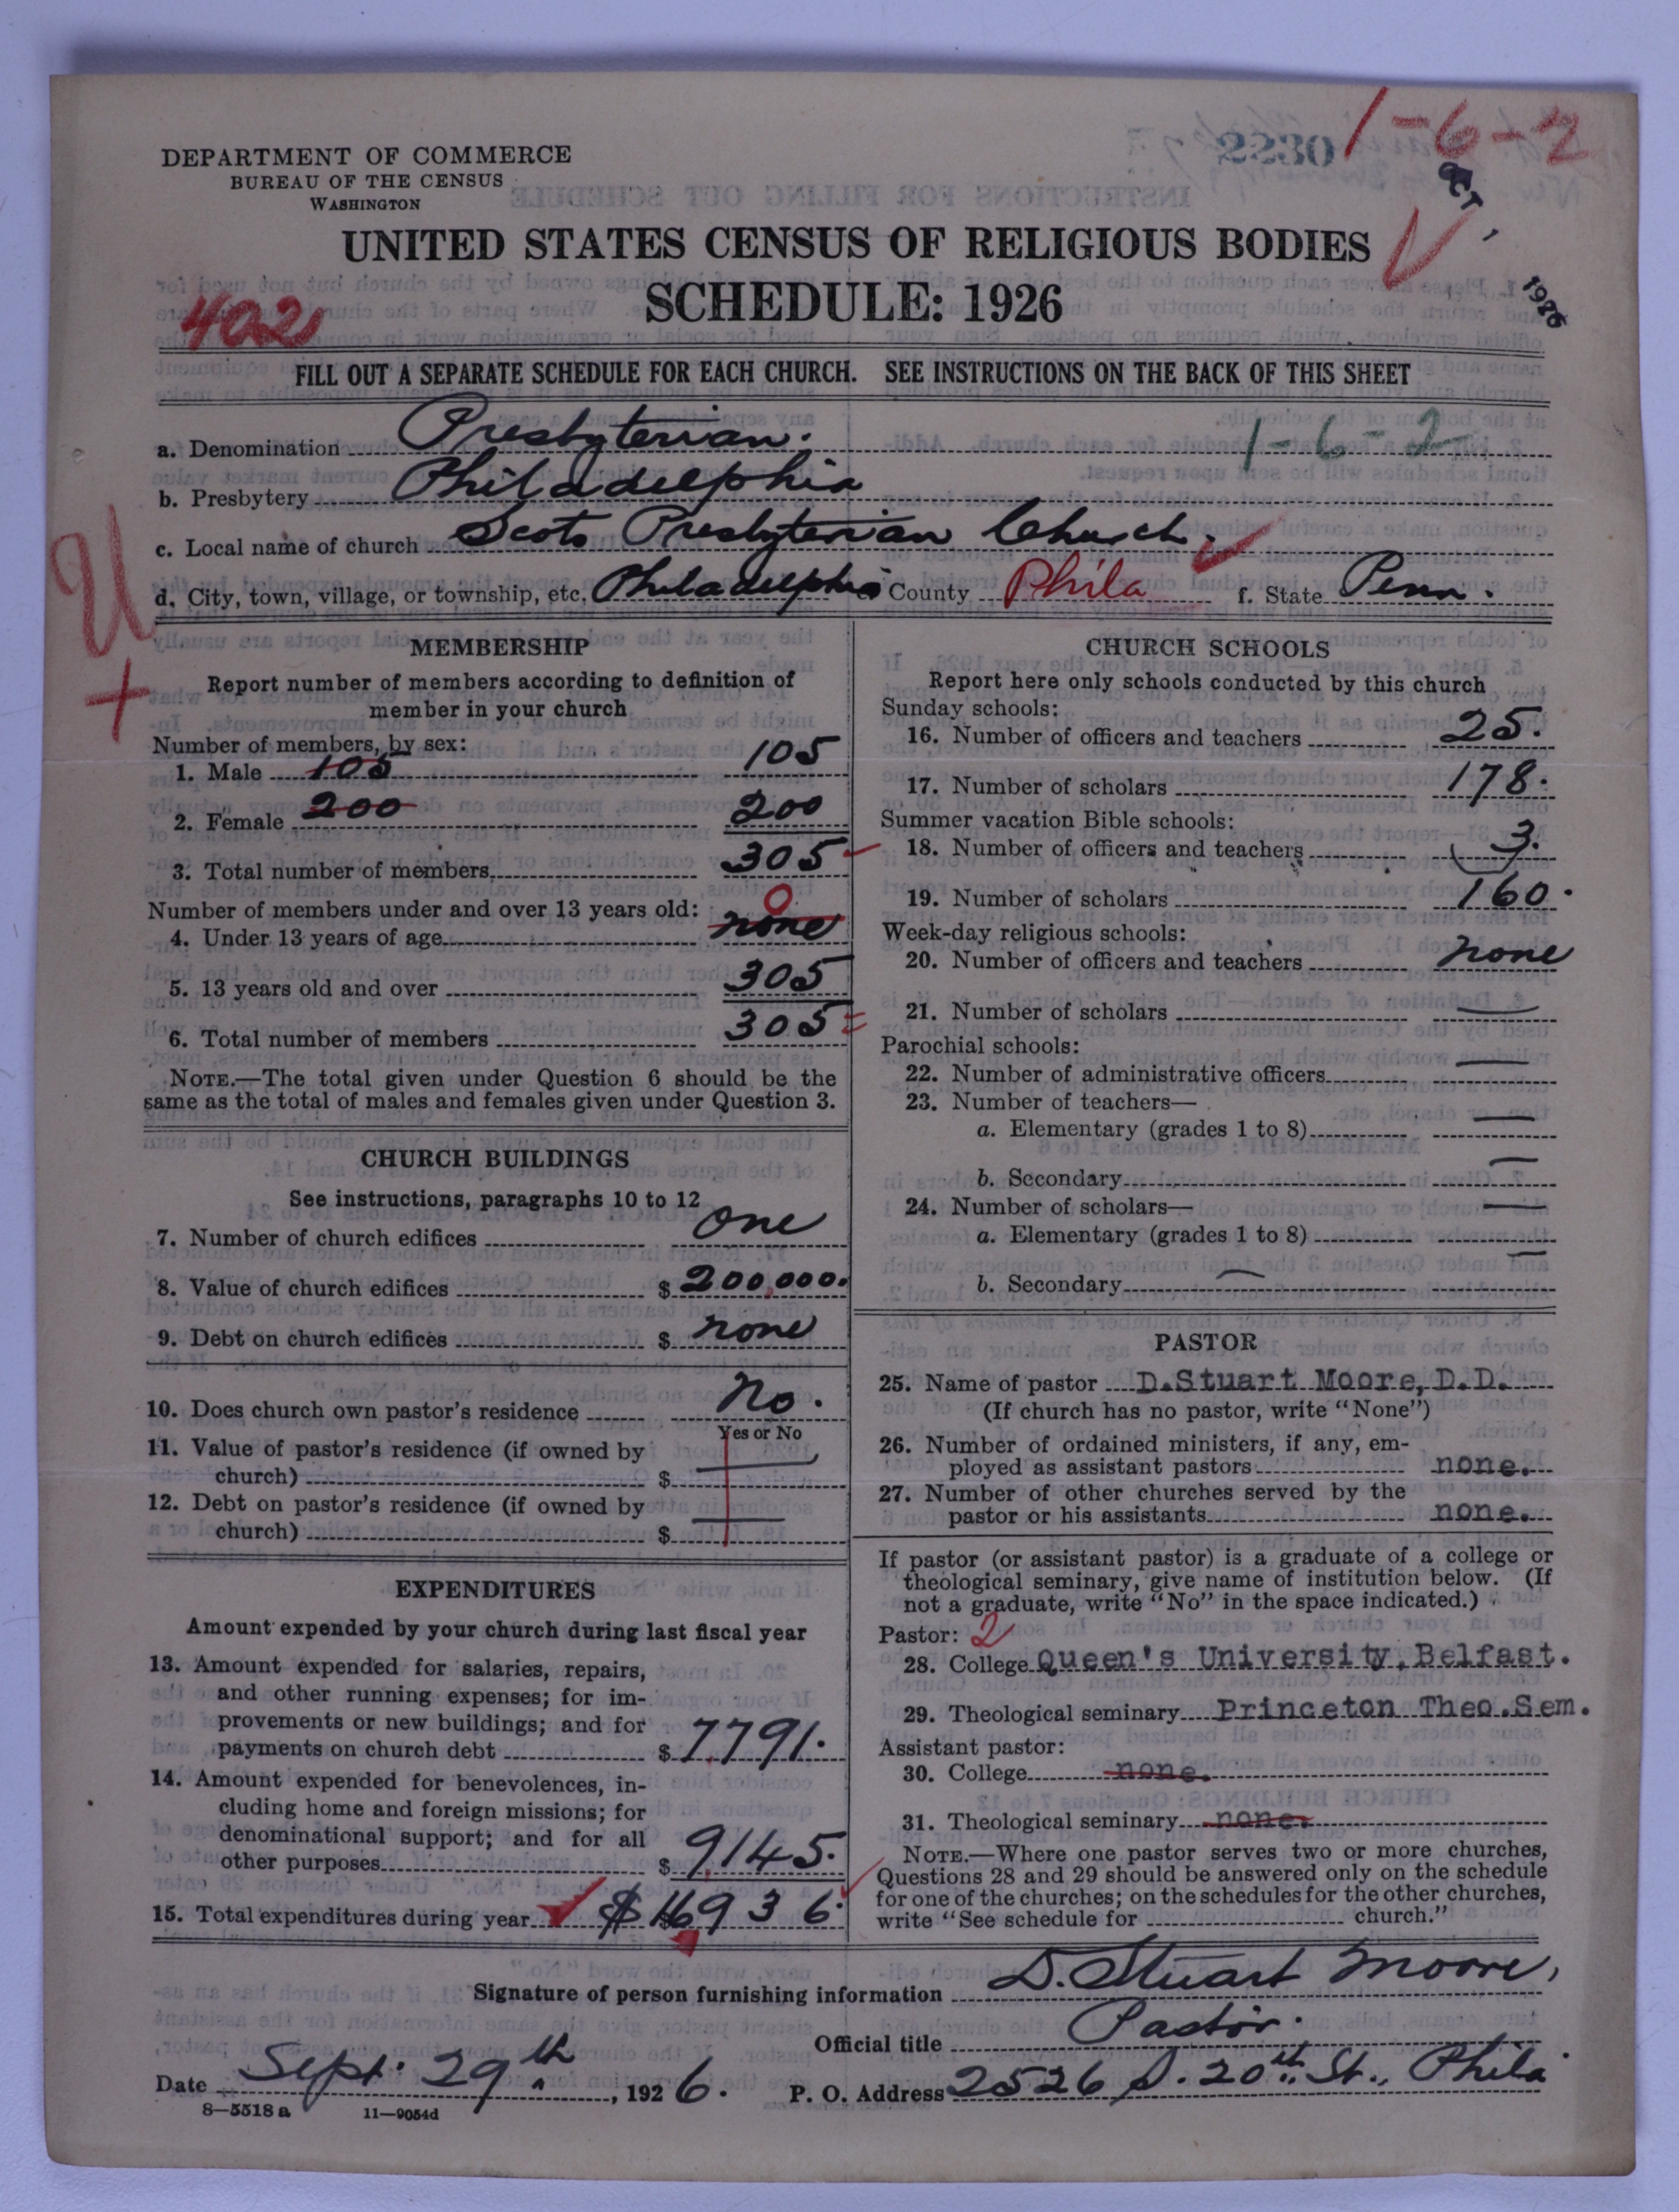 2230
1-6-2
OCT 1 1926
DEPARTMENT OF COMMERCE
BUREAU OF THE CENSUS
WASHINGTON
UNITED STATES CENSUS OF RELIGIOUS BODIES
SCHEDULE: 1926
402
FILL OUT A SEPARATE SCHEDULE FOR EACH CHURCH. SEE INSTRUCTIONS ON THE BACK OF THIS SHEET
a. Denomination Presbyterian. 1-6-2
b. Presbytery Philadelphia
c. Local name of church Scots Presbyterian Church.
d. City, town, village, or township, etc. Philadelphia County Phila f. State Penn.
U
+
MEMBERSHIP
Report number of members according to definition of
member in your church
Number of members, by sex:
1. Male 105 105
2. Female 200 200
3. Total number of members 305
Number of members under and over 13 years old: 0
4. Under 13 years of age none
5. 13 years old and over 305
6. Total number of members 305
NOTE.—The total given under Question 6 should be the
same as the total of males and females given under Question 3.
CHURCH BUILDINGS
See instructions, paragraphs 10 to 12
7. Number of church edifices one
8. Value of church edifices $ 200,000.
9. Debt on church edifices $ none
10. Does church own pastor's residence No.
Yes or No
11. Value of pastor's residence (if owned by
church) $ —
12. Debt on pastor's residence (if owned by
church) $ —
EXPENDITURES
Amount expended by your church during last fiscal year
13. Amount expended for salaries, repairs,
and other running expenses; for im-
provements or new buildings; and for
payments on church debt $ 7791.
14. Amount expended for benevolences, in-
cluding home and foreign missions; for
denominational support; and for all
other purposes $ 9145.
15. Total expenditures during year $ 16936.
CHURCH SCHOOLS
Report here only schools conducted by this church
Sunday schools:
16. Number of officers and teachers 25.
17. Number of scholars 178.
Summer vacation Bible schools:
18. Number of officers and teachers 3.
19. Number of scholars 160.
Week-day religious schools:
20. Number of officers and teachers none
21. Number of scholars —
Parochial schools:
22. Number of administrative officers —
23. Number of teachers—
a. Elementary (grades 1 to 8) —
b. Secondary —
24. Number of scholars— —
a. Elementary (grades 1 to 8) —
b. Secondary —
PASTOR
25. Name of pastor D.Stuart Moore, D.D.
(If church has no pastor, write "None")
26. Number of ordained ministers, if any, em-
ployed as assistant pastors none.
27. Number of other churches served by the
pastor or his assistants none.
If pastor (or assistant pastor) is a graduate of a college or
theological seminary, give name of institution below. (If
not a graduate, write "No" in the space indicated.)
Pastor: 2
28. College Queen's University, Belfast.
29. Theological seminary Princeton Theo.Sem.
Assistant pastor:
30. College none.
31. Theological seminary none.
NOTE.—Where one pastor serves two or more churches,
Questions 28 and 29 should be answered only on the schedule
for one of the churches; on the schedules for the other churches,
write "See schedule for church."
Signature of person furnishing information D. Stuart Moore,
Official title Pastor.
Date Sept. 29th, 1926. P. O. Address 2526 S. 20th St., Phila
8—5518 a 11—9054d